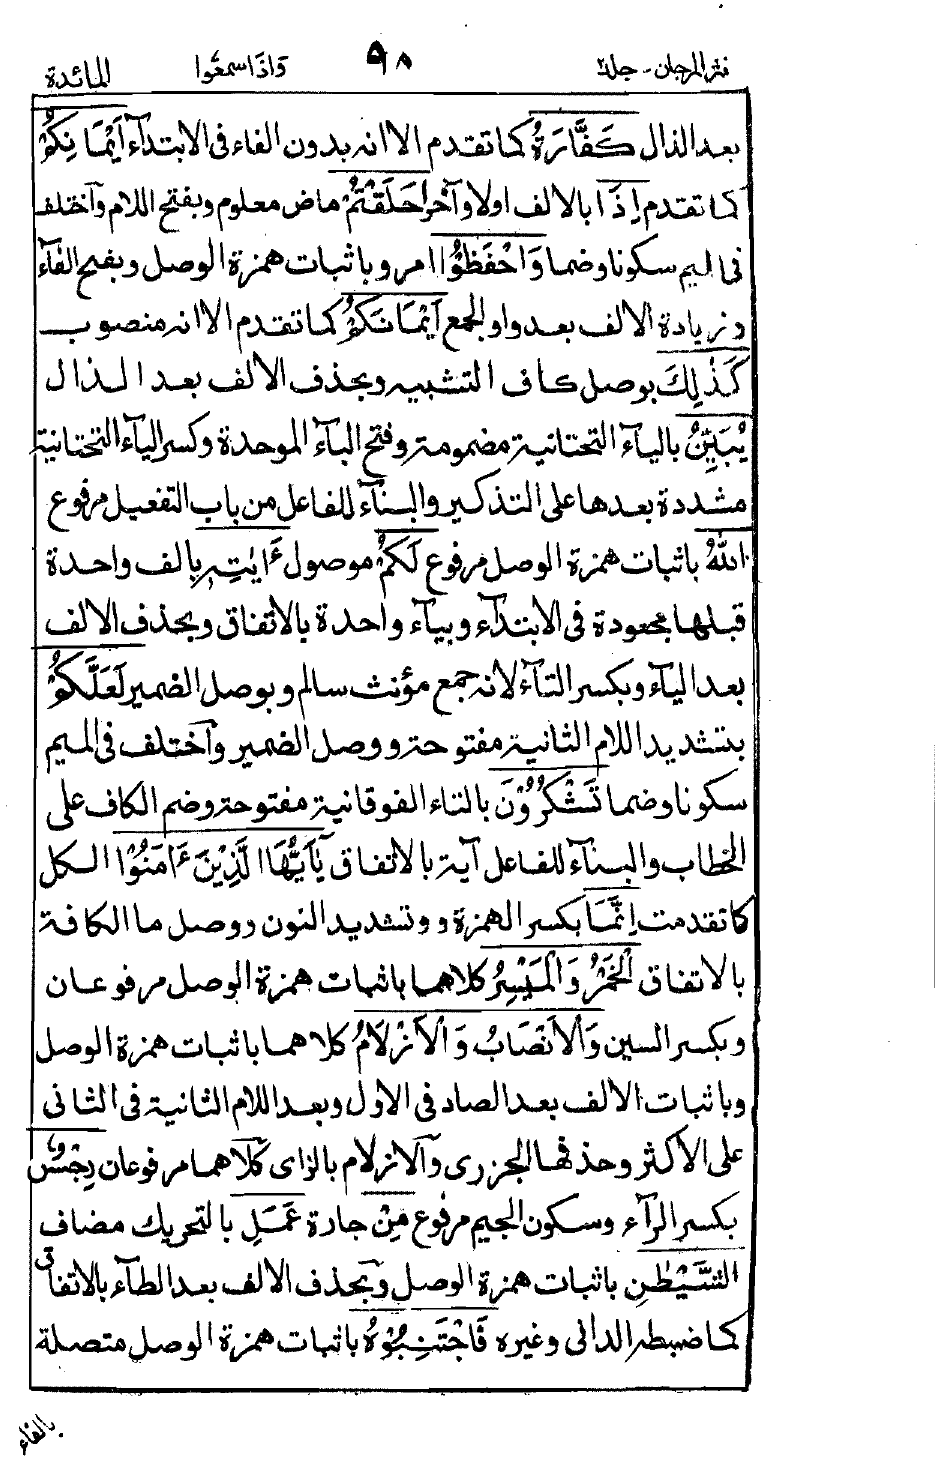 نثر المرجان - جلد٢ ٩٨ وَاذَا سمعُوا المائدة
بعد الذال كَفَّارَةُ كما تقدم الا انه بدون الفاء فى الابتدآء أَيْمَا نِكُمْ
كما تقدم إِذَا بالالف اولا وآخرا حَلَفْتُمْ ماض معلوم وبفتح اللام وآختلف
فى الميم سكونا وضما وَاحْفَظُوْا امر وباثبات همزة الوصل وبفتح الفآء
وزيادة الالف بعد واو الجمع أَيْمَانَكُمْ كما تقدم الا انه منصوب
كَذٰلِكَ بوصل كاف التشبيه وبحذف الالف بعد الذال
يُبَيِّنُ باليآء التحتانية مضمومة وفتح البآء الموحدة وكسر اليآء التحتانية
مشددة بعدها على التذكير والبنآء للفاعل من باب التفعيل مرفوع
اللهُ باثبات همزة الوصل مرفوع لَكُمْ موصول ءَايٰتِهٖ بالف واحدة
قبلها مجعودة فى الابتدآء وبيآء واحدة بالاتفاق وبحذف الالف
بعد اليآء وبكسر التآء لانه جمع مؤنث سالم وبوصل الضمير لَعَلَّكُمْ
بتشديد اللام الثانية مفتوحة ووصل الضمير وآختلف فى الميم
سكونا وضما تَشْكُرُوْنَ بالتاء الفوقانية مفتوحة وضم الكاف على
الخطاب والبنآء للفاعل آية بالاتفاق يٰٓأَيُّهَا الَّذِيْنَ ءَامَنُوْا الكل
كما تقدمت إِنَّمَا بكسر الهمزة و وتشديد النون ووصل ما الكافة
بالاتفاق الْخَمْرُ وَالْمَيْسِرُ كلاهما باثبات همزة الوصل مرفوعان
وبكسر السين وَالْاَنْصَابُ وَالْاَزْلَامُ كلاهما باثبات همزة الوصل
وباثبات الالف بعد الصاد فى الاول وبعد اللام الثانية فى الثانى
على الاكثر وحذفها الجزرى وآلازلام بالزاى كلاهما مرفوعان رِجْسٌ
بكسر الرآء وسكون الجيم مرفوع مِنْ جارة عَمَلِ بالتحريك مضاف
الشَّيْطٰنِ باثبات همزة الوصل وبحذف الالف بعد الطآء بالاتفاق
كما ضبطه الدانى وغيره فَاجْتَنِبُوْهُ باثبات همزة الوصل متصلة
بالفاء